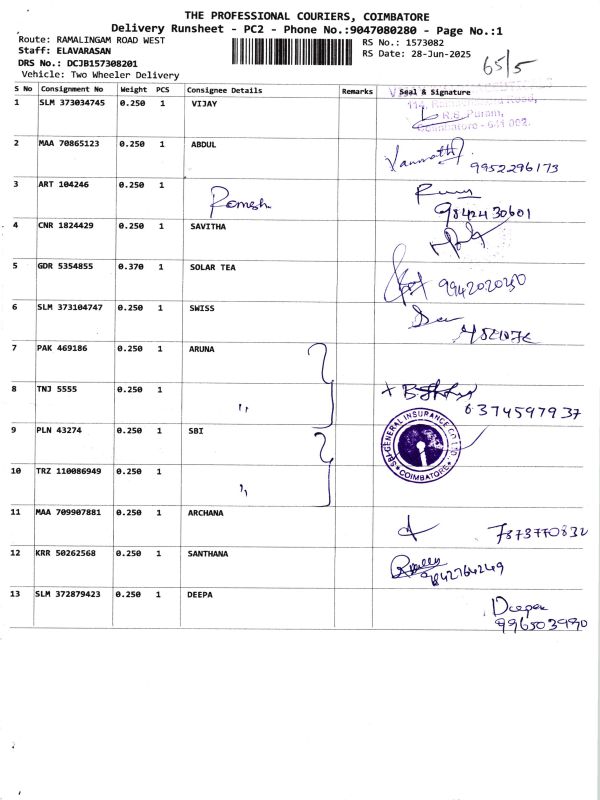 THE PROFESSIONAL COURIERS, COIMBATORE
Delivery Runsheet - PC2 - Phone No.:9047080280 - Page No.:1
Route: RAMALINGAM ROAD WEST
Staff: ELAVARASAN
DRS No.: DCJB157308201
Vehicle: Two Wheeler Delivery
RS No.: 1573082
RS Date: 28-Jun-2025
65/5
S No Consignment No Weight PCS Consignee Details Remarks Seal & Signature
1 SLM 373034745 0.250 1 VIJAY
R.S. Puram,
Coimbatore - 641 002.
2 MAA 70865123 0.250 1 ABDUL
9952296173
3 ART 104246 0.250 1 Ramesh
9842430601
4 CNR 1824429 0.250 1 SAVITHA
5 GDR 5354855 0.370 1 SOLAR TEA
9942020230
6 SLM 373104747 0.250 1 SWISS
7 PAK 469186 0.250 1 ARUNA
8 TNJ 5555 0.250 1 ,,
6374597937
9 PLN 43274 0.250 1 SBI
SBI GENERAL INSURANCE CO LTD
COIMBATORE
10 TRZ 110086949 0.250 1 ,,
11 MAA 709907881 0.250 1 ARCHANA
7373770832
12 KRR 50262568 0.250 1 SANTHANA
9842764249
13 SLM 372879423 0.250 1 DEEPA
Deepa
9965039990